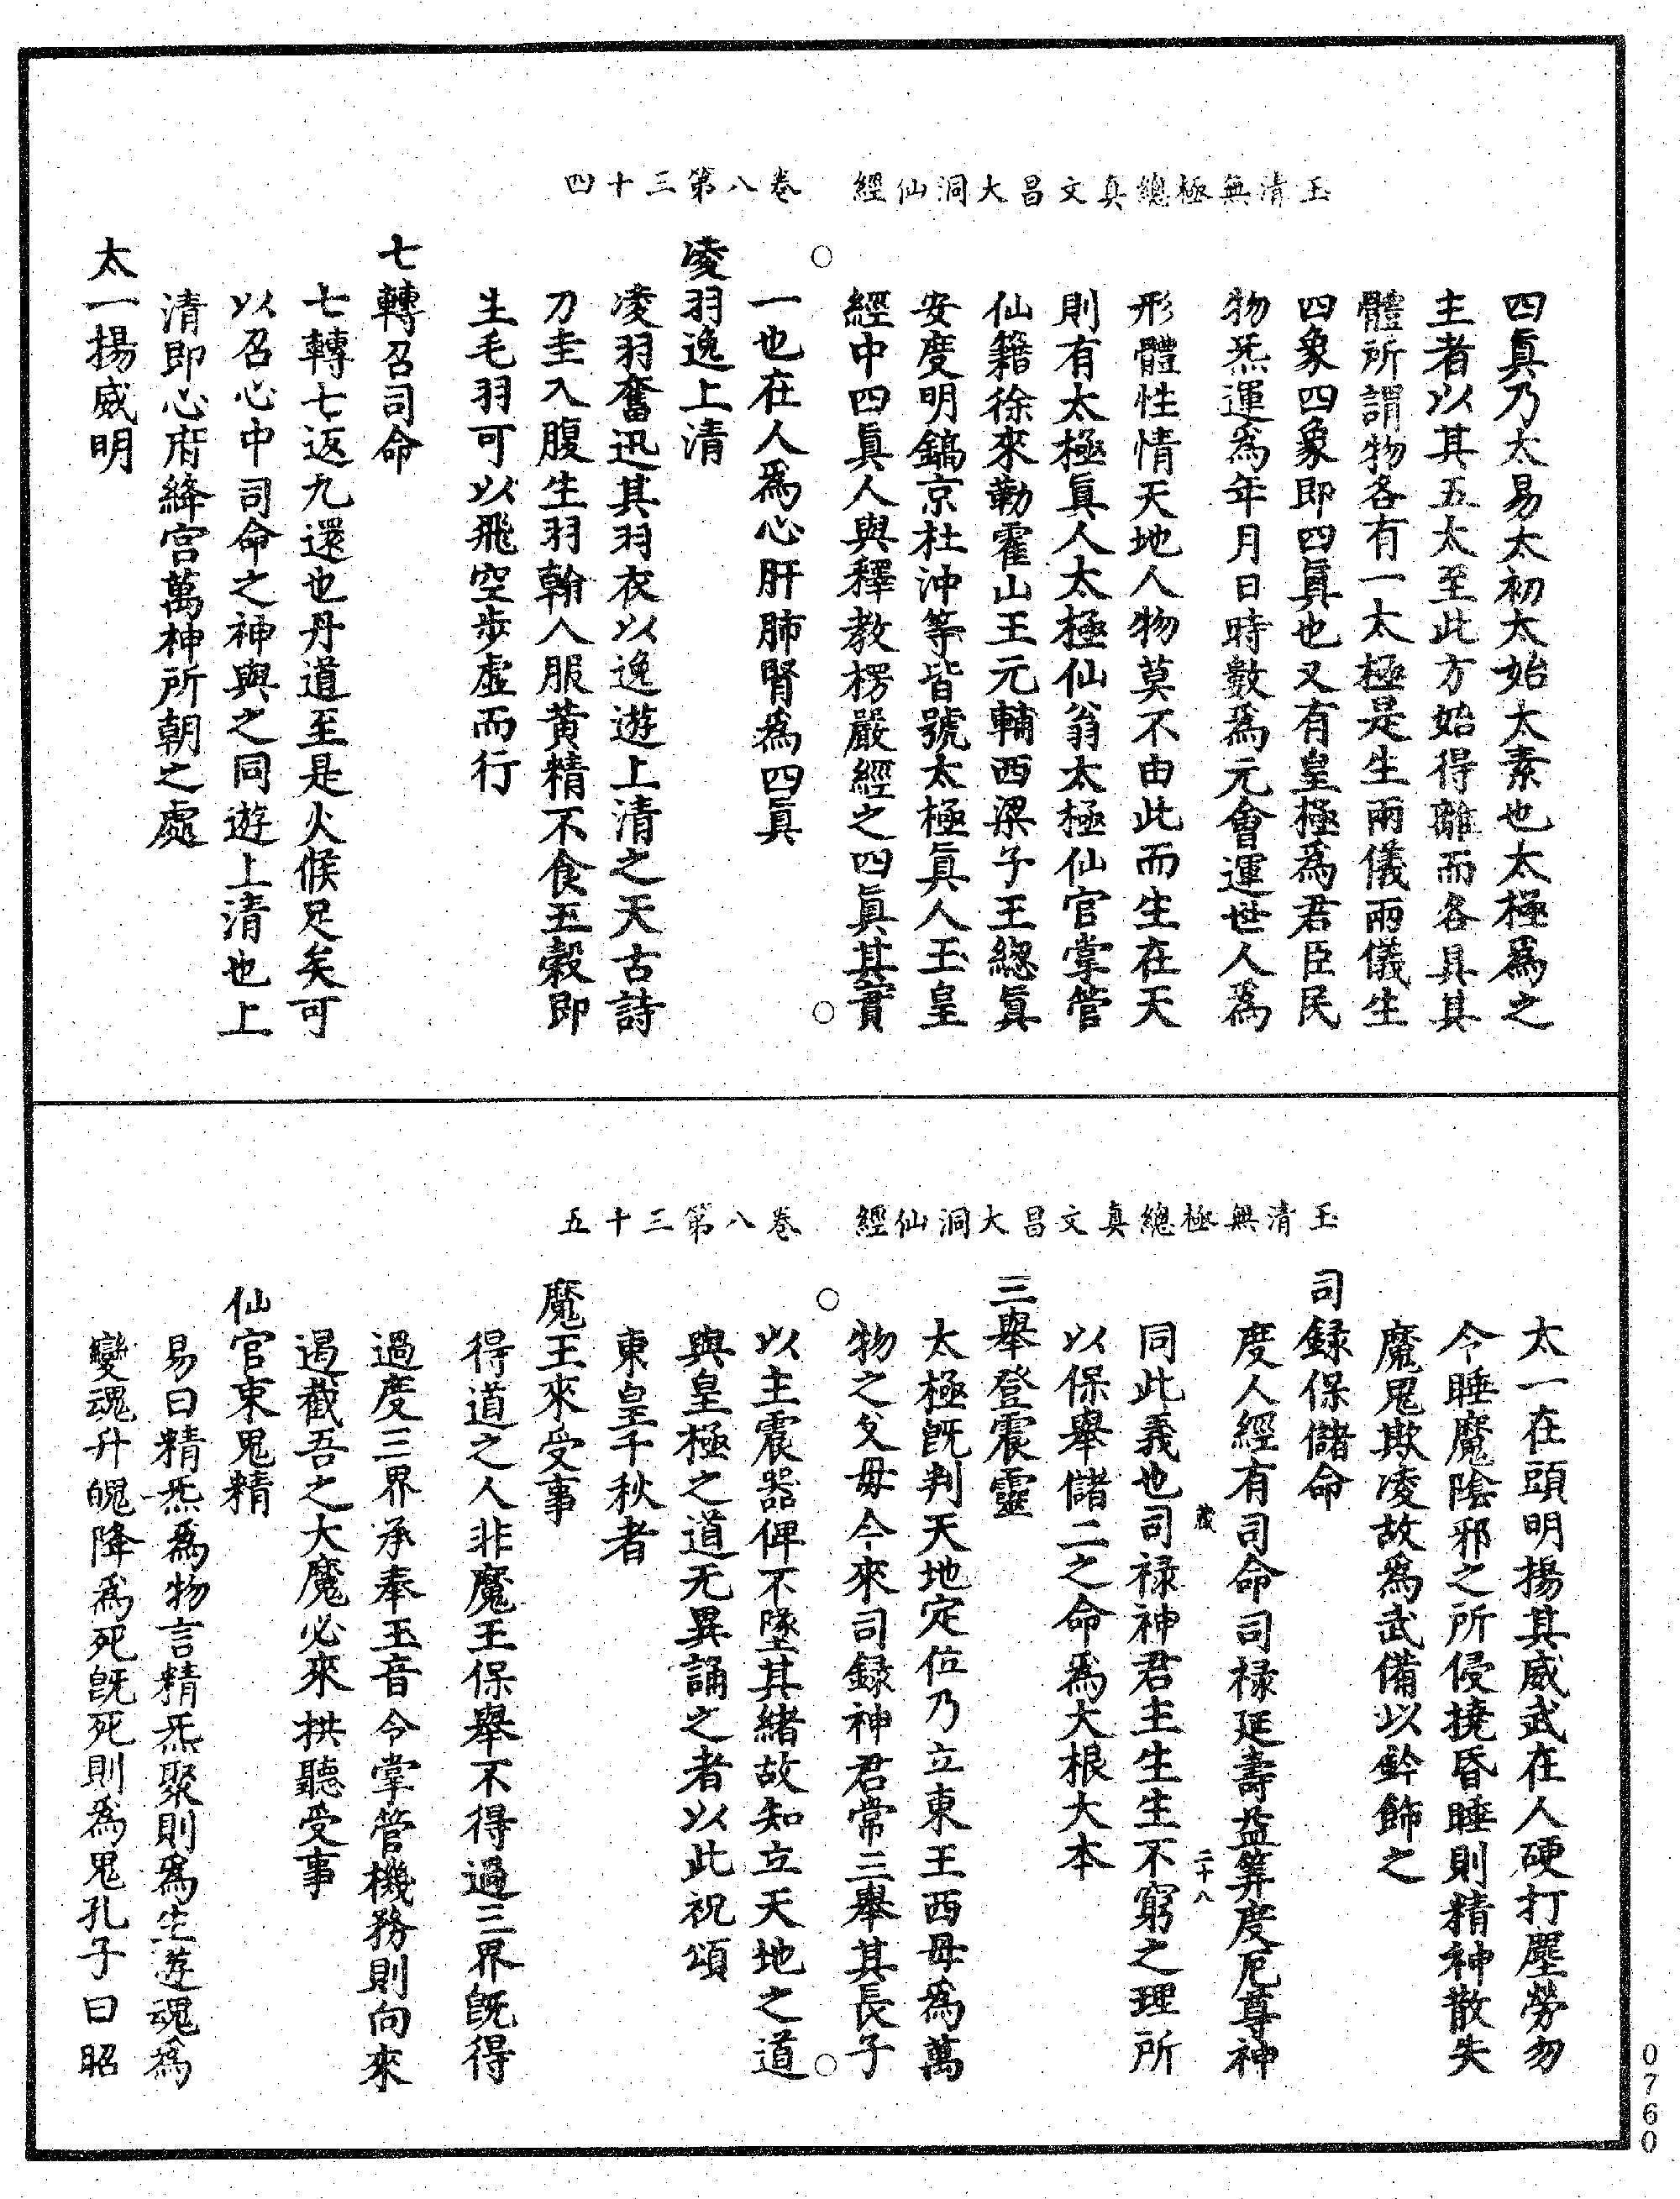 玉清無極總真文昌大洞仙經　卷八第三十四
四眞乃太易太初太始太素也太極爲之
主者以其五太至此方始得離而各具其
體所謂物各有一太極是生兩儀兩儀生
四象四象即四眞也又有皇極爲君臣民
物炁運爲年月日時數爲元會運世人爲
形體性情天地人物莫不由此而生在天
則有太極眞人太極仙翁太極仙官掌管
仙籍徐來勒霍山王元輔西梁子王總眞
安度明鎬京杜沖等皆號太極眞人王皇
經中四眞人與釋教楞嚴經之四眞其實
一也在人爲心肝肺腎爲四眞
凌羽逸上清
凌羽奮迅其羽衣以逸遊上清之天古詩
刀圭入腹生羽翰人服黃精不食五穀即
生毛羽可以飛空步虛而行
七轉召司命
七轉七返九還也丹道至是火候足矣可
以召心中司命之神與之同遊上清也上
清即心府絳宮萬神所朝之處
太一揚威明
玉清無極總真文昌大洞仙經　卷八第三十五
太一在頭明揚其威武在人硬打塵勞勿
令睡魔陰邪之所侵撓昏睡則精神散失
魔鬼欺凌故爲武備以鈐飾之
司録保儲命
度人經有司命司祿延壽益筭度厄尊神
藏　二十八
同此義也司祿神君主生生不窮之理所
以保舉儲二之命爲大根大本
三舉登震靈
太極旣判天地定位乃立東王西母爲萬
物之父毋今來司録神君常三舉其長子
以主震器俾不墜其緒故知立天地之道
與皇極之道无異誦之者以此祝頌
東皇千秋者
魔王來受事
得道之人非魔王保舉不得過三界旣得
過度三界承奉玉音令掌管機務則向來
遏截吾之大魔必來拱聽受事
仙官束鬼精
易曰精炁爲物言精炁聚則爲生遊魂爲
變魂升魄降爲死旣死則爲鬼孔子曰昭
0760